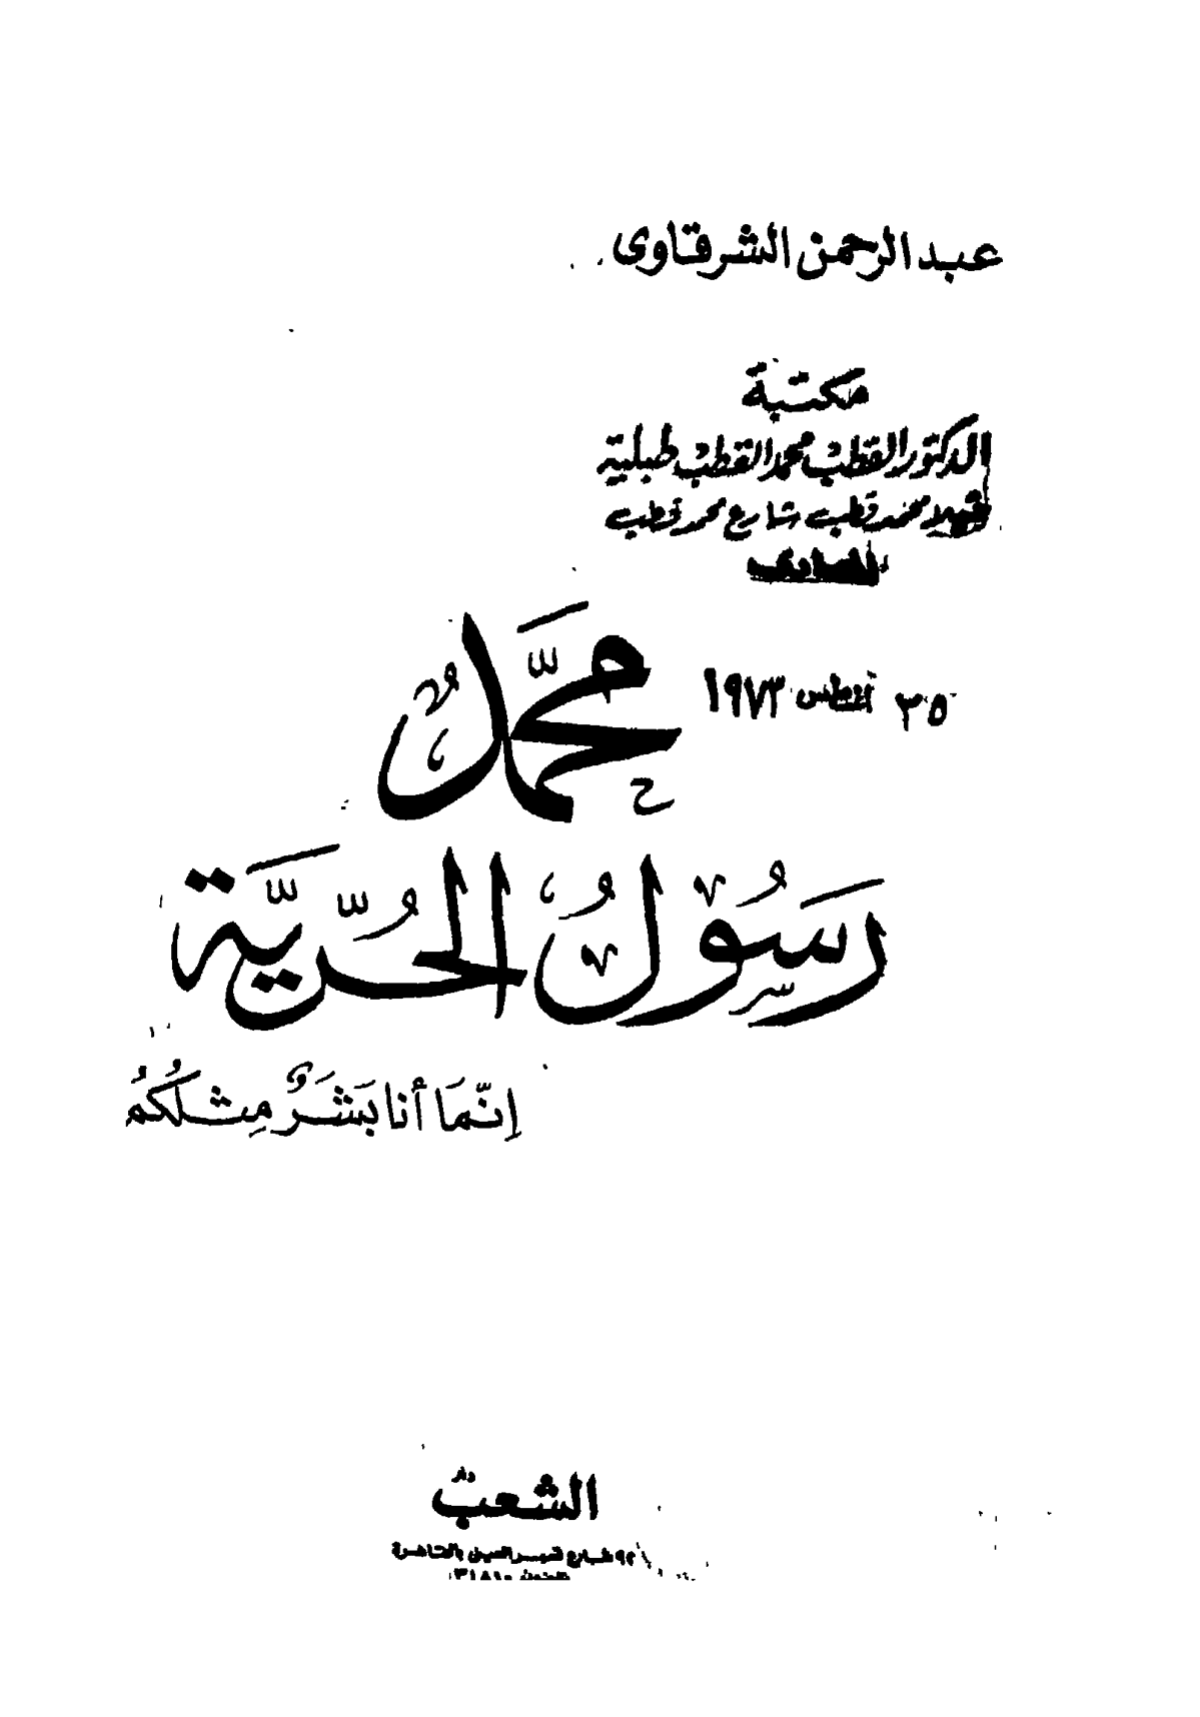 عبد الرحمن الشرقاوى
مكتبة
الدكتور القطب محمد القطب طبلية
محمد قطب شارع محمد قطب
٢٥ أغسطس ١٩٧٣
مُحَمَّدٌ
رَسُولُ الحُرِّيَّة
إنّمَا أنا بَشَرٌ مِثلُكُمُ
دار
الشعب
٩٢ شارع قصر العينى بالقاهرة
٣١٨١٠